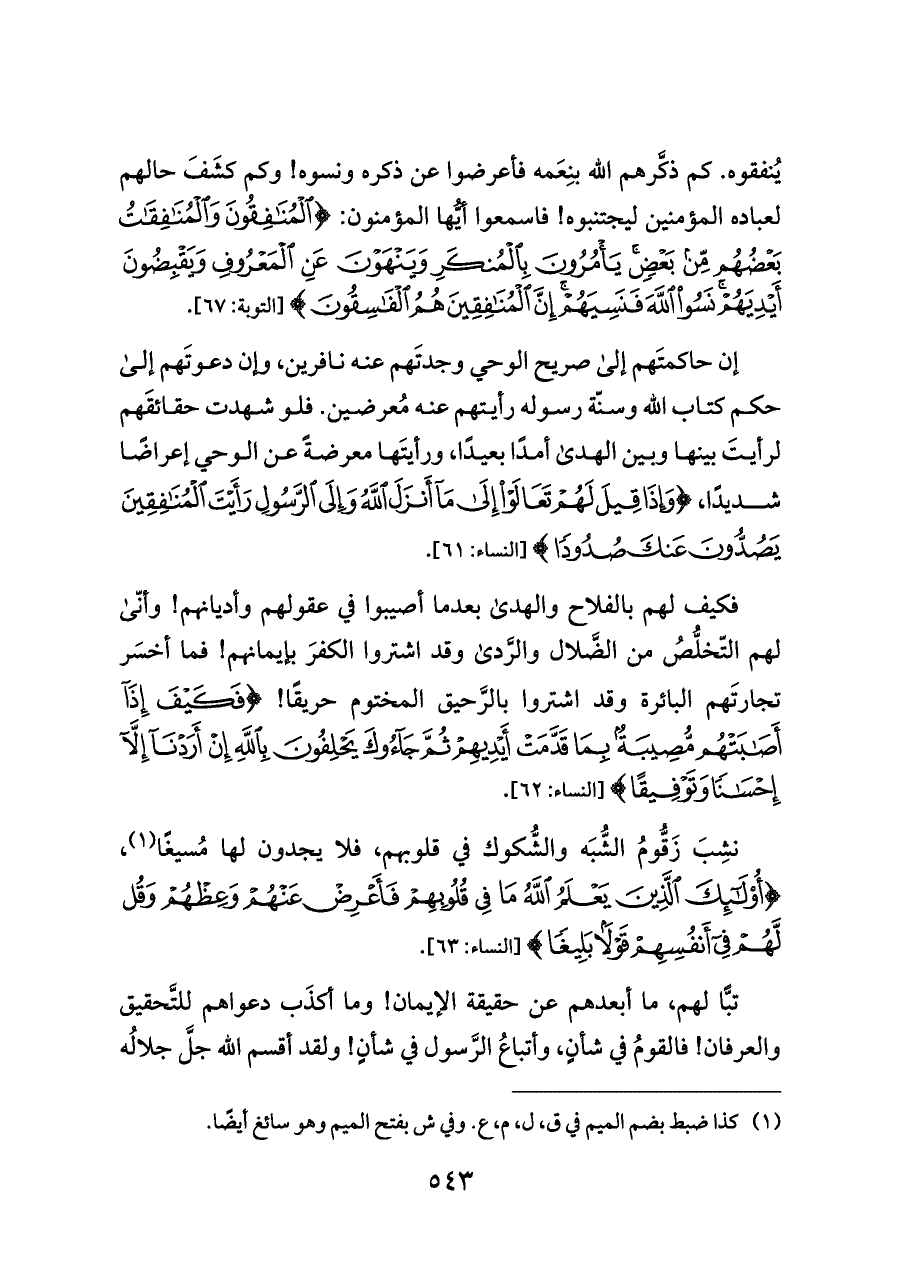 يُنفقوه. كم ذكَّرهم الله بنِعَمه فأعرضوا عن ذكره ونسوه! وكم كشَفَ حالهم
لعباده المؤمنين ليجتنبوه! فاسمعوا أيُّها المؤمنون: ﴿ٱلْمُنَٰفِقُونَ وَٱلْمُنَٰفِقَٰتُ
بَعْضُهُم مِّنۢ بَعْضٍۚ يَأْمُرُونَ بِٱلْمُنكَرِ وَيَنْهَوْنَ عَنِ ٱلْمَعْرُوفِ وَيَقْبِضُونَ
أَيْدِيَهُمْۚ نَسُوا۟ ٱللَّهَ فَنَسِيَهُمْۚ إِنَّ ٱلْمُنَٰفِقِينَ هُمُ ٱلْفَٰسِقُونَ﴾ [التوبة: ٦٧].
إن حاكمتَهم إلىٰ صريح الوحي وجدتَهم عنه نافرين، وإن دعوتَهم إلىٰ
حكم كتاب الله وسنّة رسوله رأيتهم عنه مُعرضين. فلو شهدت حقائقَهم
لرأيتَ بينها وبين الهدىٰ أمدًا بعيدًا، ورأيتَها معرضةً عن الوحي إعراضًا
شديدًا، ﴿وَإِذَا قِيلَ لَهُمْ تَعَالَوْا۟ إِلَىٰ مَآ أَنزَلَ ٱللَّهُ وَإِلَى ٱلرَّسُولِ رَأَيْتَ ٱلْمُنَٰفِقِينَ
يَصُدُّونَ عَنكَ صُدُودًا﴾ [النساء: ٦١].
فكيف لهم بالفلاح والهدىٰ بعدما أصيبوا في عقولهم وأديانهم! وأنّىٰ
لهم التّخلُّصُ من الضَّلال والرَّدىٰ وقد اشتروا الكفرَ بإيمانهم! فما أخسَر
تجارتَهم البائرة وقد اشتروا بالرَّحيق المختوم حريقًا! ﴿فَكَيْفَ إِذَآ
أَصَٰبَتْهُم مُّصِيبَةٌۢ بِمَا قَدَّمَتْ أَيْدِيهِمْ ثُمَّ جَآءُوكَ يَحْلِفُونَ بِٱللَّهِ إِنْ أَرَدْنَآ إِلَّآ
إِحْسَٰنًا وَتَوْفِيقًا﴾ [النساء: ٦٢].
نشِبَ زَقُّومُ الشُّبَه والشُّكوك في قلوبهم، فلا يجدون لها مُسيغًا(١)،
﴿أُو۟لَٰٓئِكَ ٱلَّذِينَ يَعْلَمُ ٱللَّهُ مَا فِى قُلُوبِهِمْ فَأَعْرِضْ عَنْهُمْ وَعِظْهُمْ وَقُل
لَّهُمْ فِىٓ أَنفُسِهِمْ قَوْلًۢا بَلِيغًا﴾ [النساء: ٦٣].
تبًّا لهم، ما أبعدهم عن حقيقة الإيمان! وما أكذَب دعواهم للتَّحقيق
والعرفان! فالقومُ في شأنٍ، وأتباعُ الرَّسول في شأنٍ! ولقد أقسم الله جلَّ جلالُه
(١) كذا ضبط بضم الميم في ق، ل، م، ع. وفي ش بفتح الميم وهو سائغ أيضًا.
٥٤٣